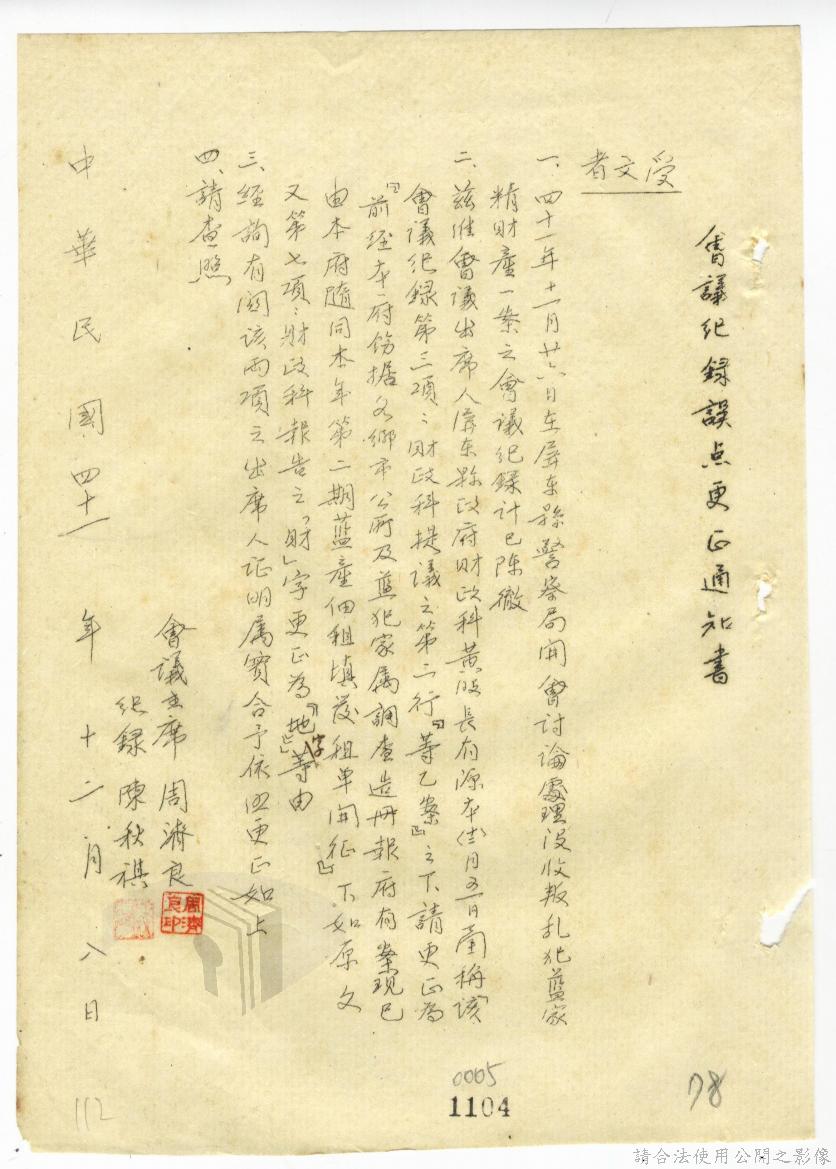 會議紀錄誤点更正通知書
受文者
一、四十一年十一月廿六日在屏东縣警察局開會討論處理沒收叛乱犯藍家
精財產一案之會議紀錄計已陳徹
二、茲准會議出席人屏东縣政府財政科黃股長有源本(十二)月五日面稱該
會議紀錄第三項：財政科提議之第二行「等乙案」之下請更正為
「前经本府飭据各鄉市公所及藍犯家属調查造冊報府有案現已
由本府隨同本年第二期藍產佃租填發租单開征」下如原文
又第七項：財政科報告之「財」字更正為「地」字等由
三、经詢有関该两項之出席人证明属實合予依照更正如上
四、請查照
會議主席 周濟良
紀錄 陳秋祺
周濟良印
中華民國四十一年十二月八日
0005
1104
78
112
請合法使用公開之影像